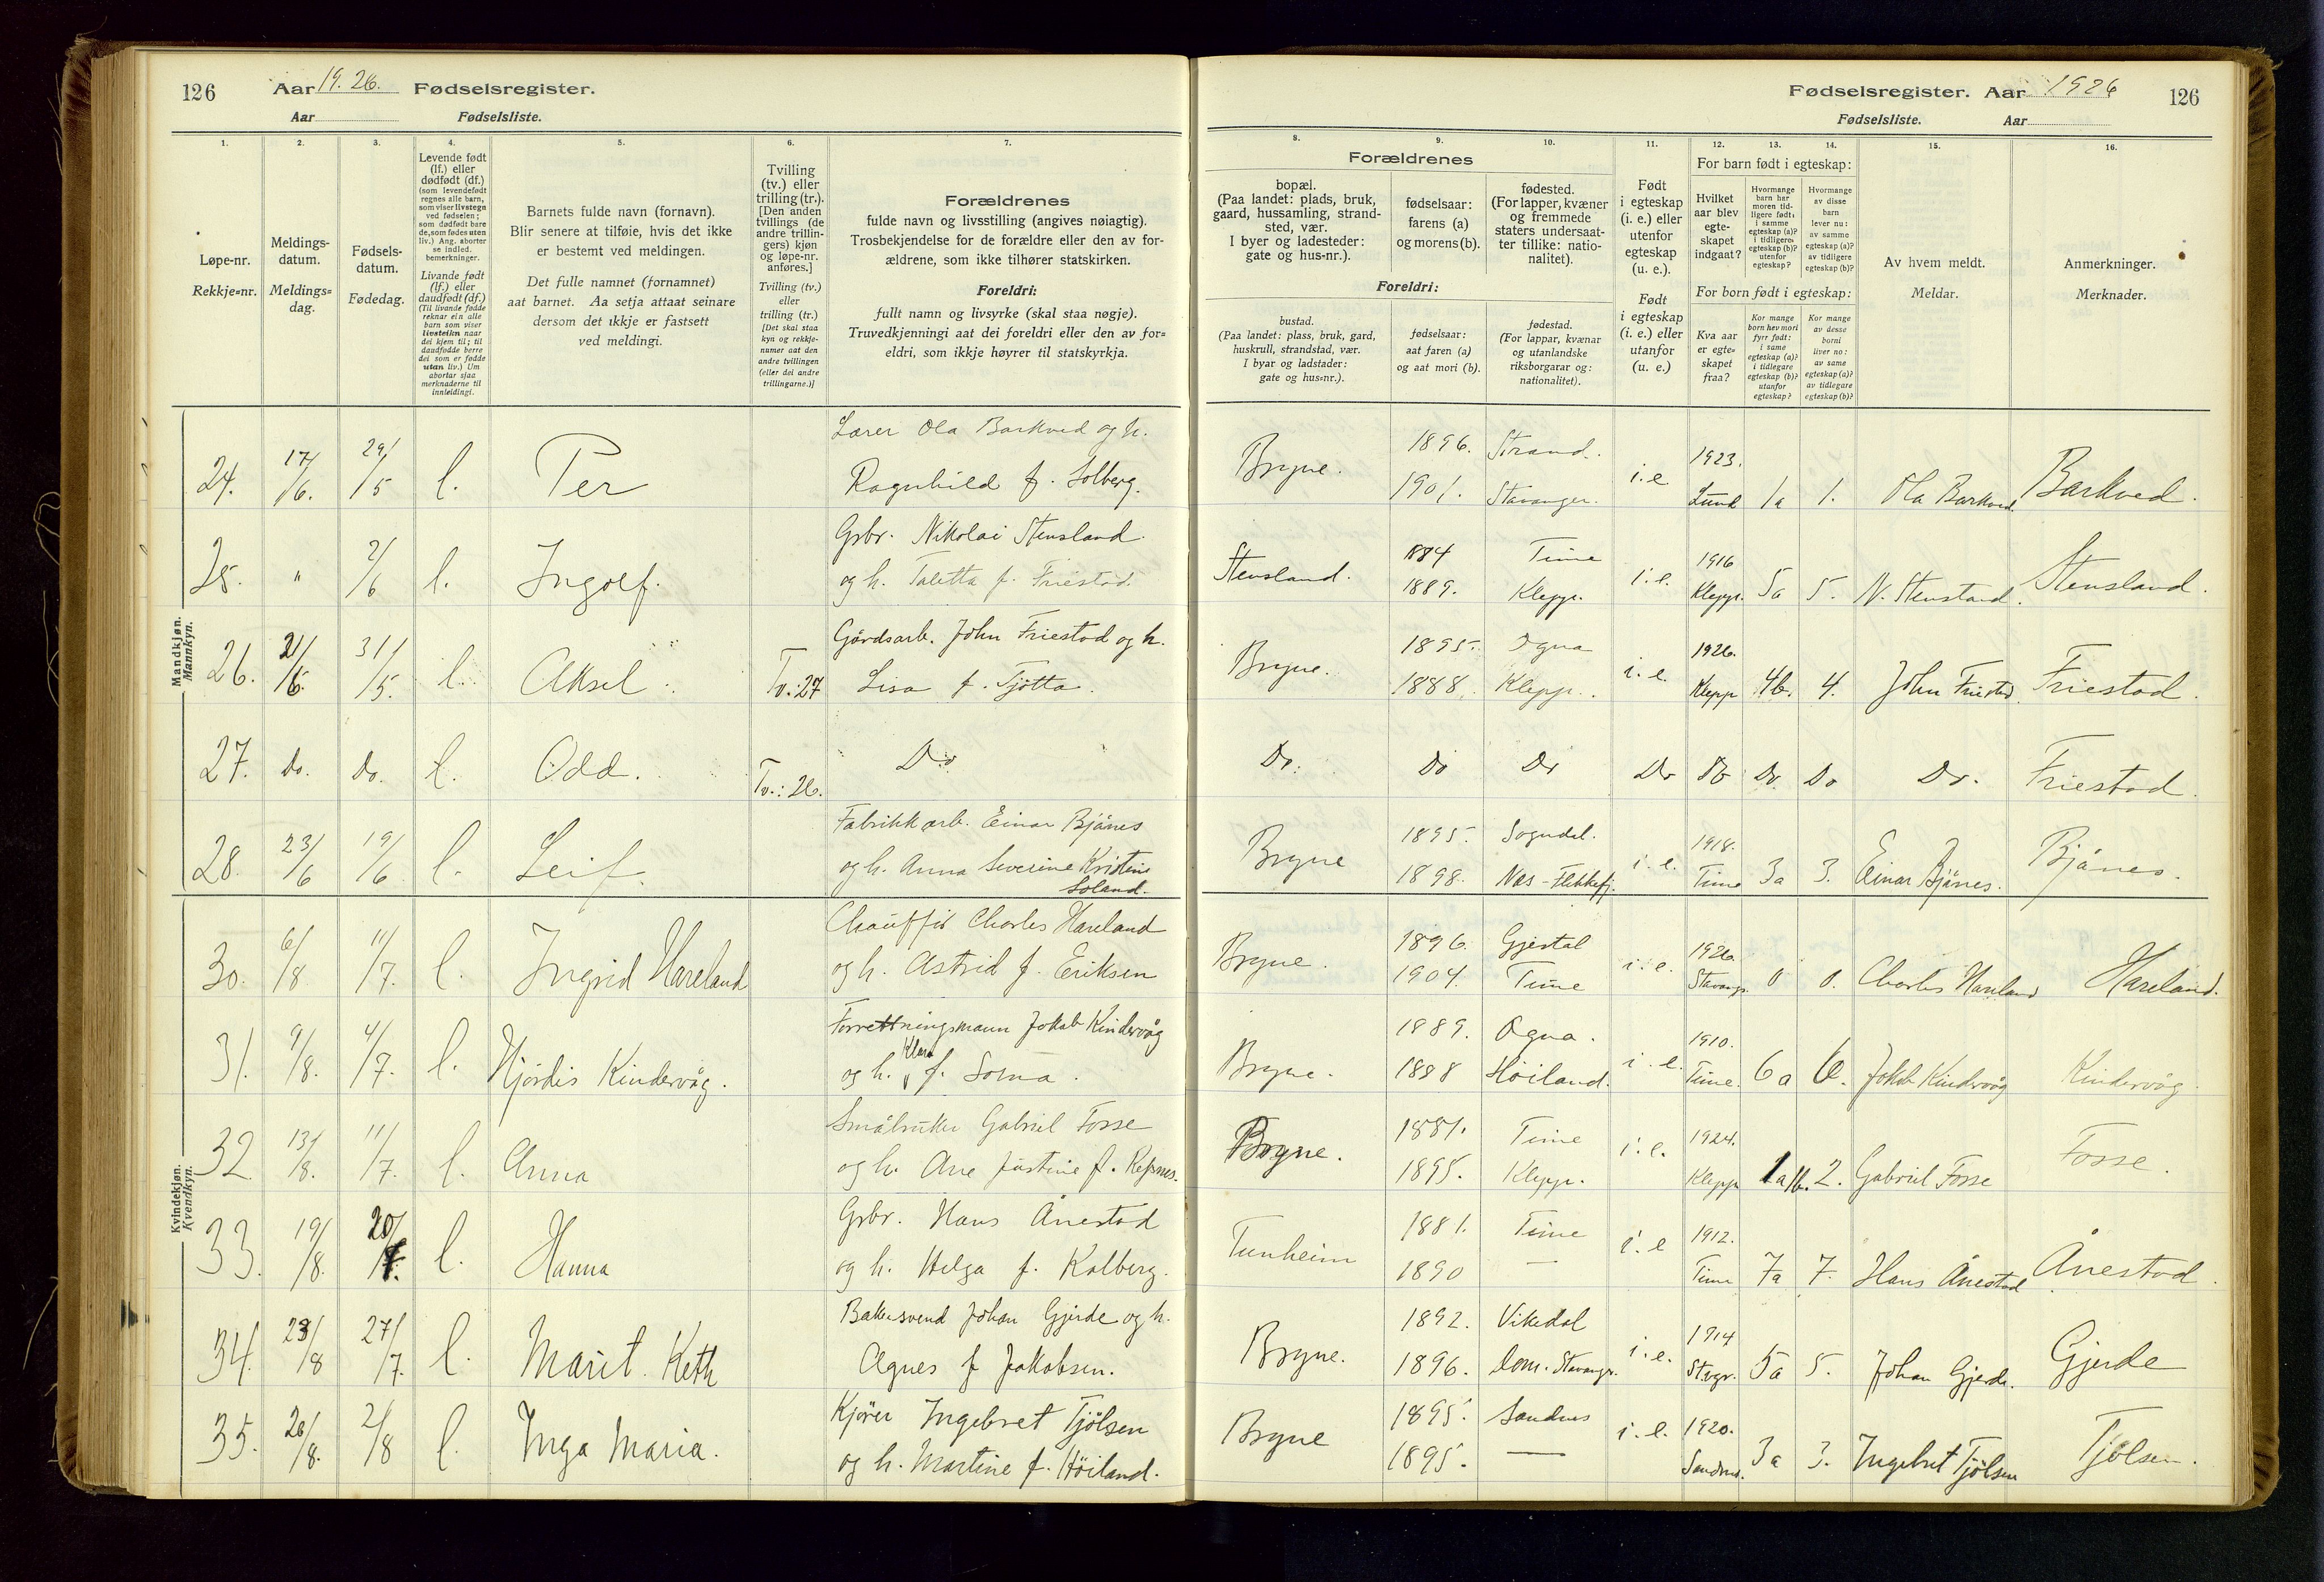 126 Aar 19.26. Fødselsregister.
Aar Fødselsliste.
Fødselsregister. Aar 1926 126
Fødselsliste. Aar
1.
Løpe-nr.
Rekkje-nr.
2.
Meldings-
datum.
Meldings-
dag.
3.
Fødsels-
datum.
Fødedag.
4.
Levende født
(lf.) eller
dødfødt (df.)
(som levendefødt
regnes alle barn,
som viser livstegn
ved fødselen;
som dødfødt bare
de, som fødes uten
liv.) Ang. aborter
se indled.
bemerkninger.
Livande født
(lf.) eller
daudfødt (df.)
(Til livande fødde
reknar ein alle
barn som viser
livsteikn naar
dei kjem til; til
daudfødde berre
dei som er fødde
utan liv.) Um
abortar sjaa
merknaderne til
innleidingi.
5.
Barnets fulde navn (fornavn).
Blir senere at tilføie, hvis det ikke
er bestemt ved meldingen.
Det fulle namnet (fornamnet)
aat barnet. Aa setja attaat seinare
dersom det ikkje er fastsett
ved meldingi.
6.
Tvilling
(tv.) eller
trilling (tr.).
[Den anden
tvillings (de
andre trillin-
gers) kjøn
og løpe-nr.
anføres.]
Tvilling (tv.)
eller
trilling (tr.)
[Det skal staa
kyn og rekkje-
numer aat den
andre tvillingen
(eller dei andre
trillingarne.)]
7.
Forældrenes
fulde navn og livsstilling (angives nøiagtig).
Trosbekjendelse for de forældre eller den av for-
ældrene, som ikke tilhører statskirken.
Foreldri:
fullt namn og livsyrke (skal staa nøgje).
Truvedkjenningi aat dei foreldri eller den av for-
eldri, som ikkje høyrer til statskyrkja.
Forældrenes
8.
bopæl.
(Paa landet: plads, bruk,
gaard, hussamling, strand-
sted, vær.
I byer og ladesteder:
gate og hus-nr.).
9.
fødselsaar:
farens (a)
og morens (b).
10.
fødested.
(For lapper, kvæner
og fremmede
staters undersaat-
ter tillike: natio-
nalitet).
Foreldri:
bustad.
(Paa landet: plass, bruk, gard,
huskrull, strandstad, vær.
I byar og ladstader:
gate og hus-nr.).
fødselsaar:
aat faren (a)
og aat mori (b).
fødestad.
(For lappar, kvænar
og utanlandske
riksborgarar og:
nationalitet).
11.
Født
i egteskap
(i. e.) eller
utenfor
egteskap
(u. e.).
Født
i egteskap
(i. e.) eller
utanfor
(u. e.)
For barn født i egteskap:
12.
Hvilket
aar blev
egte-
skapet
indgaat?
13.
Hvormange
barn har
moren tid-
ligere født:
i samme
egteskap (a)?
i tidligere
egteskap (b)?
utenfor
egteskap?
14.
Hvormange
av disse
barn
lever nu:
av samme
egteskap (a)?
av tidligere
egteskap (b)?
For born født i egteskap:
Kva aar
er egte-
skapet
fraa?
Kor mange
born hev mori
fyrr født:
i same
egteskap (a)?
i tidlegare
egteskap (b)?
utanfor
egteskap?
Kor mange
av desse
borni
liver no:
av same
egteskap (a)?
av tidlegare
egteskap (b)?
15.
Av hvem meldt.
Meldar.
16.
Anmerkninger.
Merknader.
Mandkjøn.
Mannkyn.
24. 17/6. 29/5 l. Per Lærer Ola Barkved og h.
Ragnhild f. Solberg. Bryne. 1896. Strand.
1901. Stavanger. i.e. 1923.
Lund 1a 1. Ola Barkved Barkved.
25. " 2/6 l. Ingolf. Gsbr. Nikolai Stensland
og h. Taletta f. Friestad. Stensland. 1884 Time
1889. Klepp. i.e. 1916
Klepp. 5a 5. N. Stensland. Stensland.
26. 21/6. 31/5. l. Aksel. Tv.:27 Gårdsarb. John Friestad og h.
Lisa f. Tjøtta. Bryne. 1895. Ogna
1888. Klepp. i.e. 1926.
Klepp 4b. 4. John Friestad Friestad.
27. Do. Do. l. Odd. Tv.:26. Do Do. Do Do Do Do Do. Do Do. Friestad.
28. 23/6 19/6 l. Leif. Fabrikkarb. Einar Bjånes
og h. Anna Severine Kristine
Soland. Bryne 1895. Sogndal.
1898. Næs-Flekkefj. i.e. 1918.
Time 3a 3. Einar Bjånes. Bjånes.
Kvindekjøn.
Kvendkyn.
30. 6/8. 11/7. l. Ingrid Hareland Chauffør Charles Hareland
og h. Astrid f. Eriksen Bryne. 1896. Gjestal
1904. Time i.e. 1926.
Stavangr. 0 0. Charles Hareland Hareland.
31. 9/8. 4/7. l. Hjørdis Kindervåg. Forretningsmann Jakob Kindervåg
og h. Klara f. Soma. Bryne. 1889. Ogna.
1888 Høiland. i.e. 1910.
Time. 6a 6. Jakob Kindervåg Kindervåg
32 13/8. 11/7. l. Anna Småbruker Gabriel Fosse
og h. Ane Justine f. Refsnes. Bryne. 1881. Time
1895. Klepp. i.e. 1924.
Klepp 1a/b. 2. Gabriel Fosse Fosse.
33. 19/8. 20/7. l. Hanna Gsbr. Hans Ånestad
og h. Helga f. Kalberg. Tunheim 1881. Time
1890 — i.e 1912.
Time 7a 7. Hans Ånestad Ånestad.
34. 23/8 27/7. l. Marit Keth Bakersvend Johan Gjerde og h.
Agnes f Jakobsen. Bryne. 1892. Vikedal
1896. Dom. Stavangr. i.e. 1914
Stvgr. 5a 5. Johan Gjerde. Gjerde
35. 26/8. 2/8 l. Inga Maria. Kjører Ingebret Tjølsen
og h. Martine f. Høiland. Bryne 1895. Sandnes
1895. — i.e. 1920.
Sandnes. 3a 3. Ingebret Tjølsen Tjølsen.